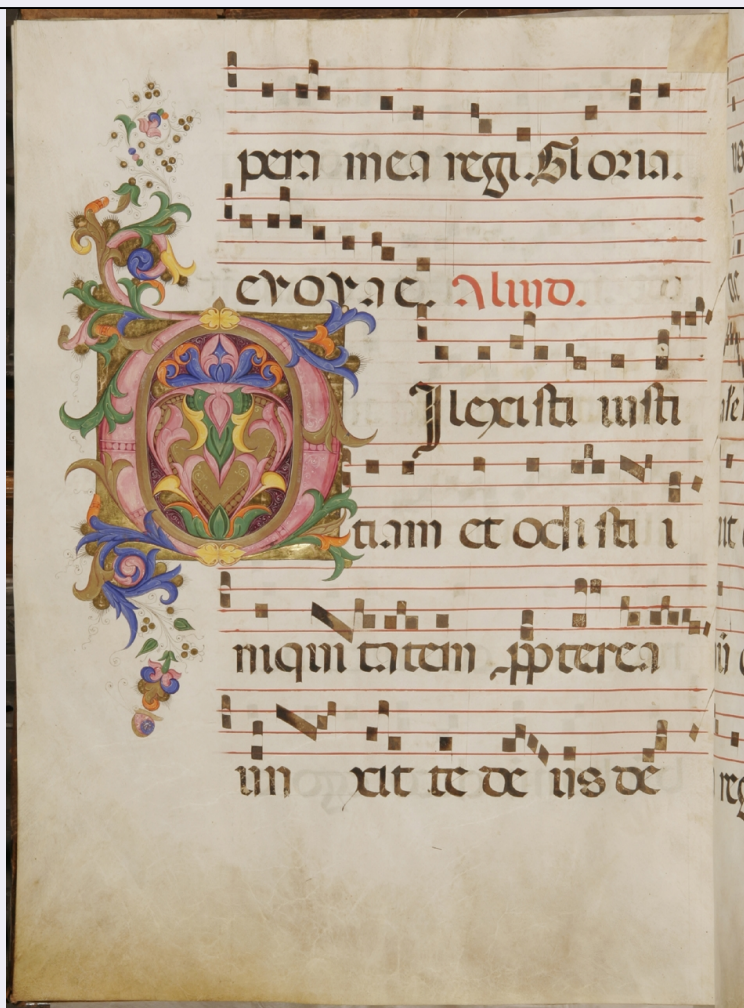 pera mea regi. Gloria.
evovae. Aliud.
Dilexisti iusti
tiam et odisti i
niquitatem ppterea
unxit te deus de